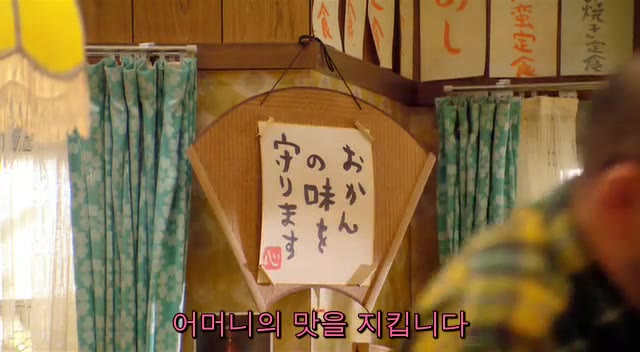 定食
めし
蛮定食
焼き定食
おかん
の味を
守ります
心
어머니의 맛을 지킵니다